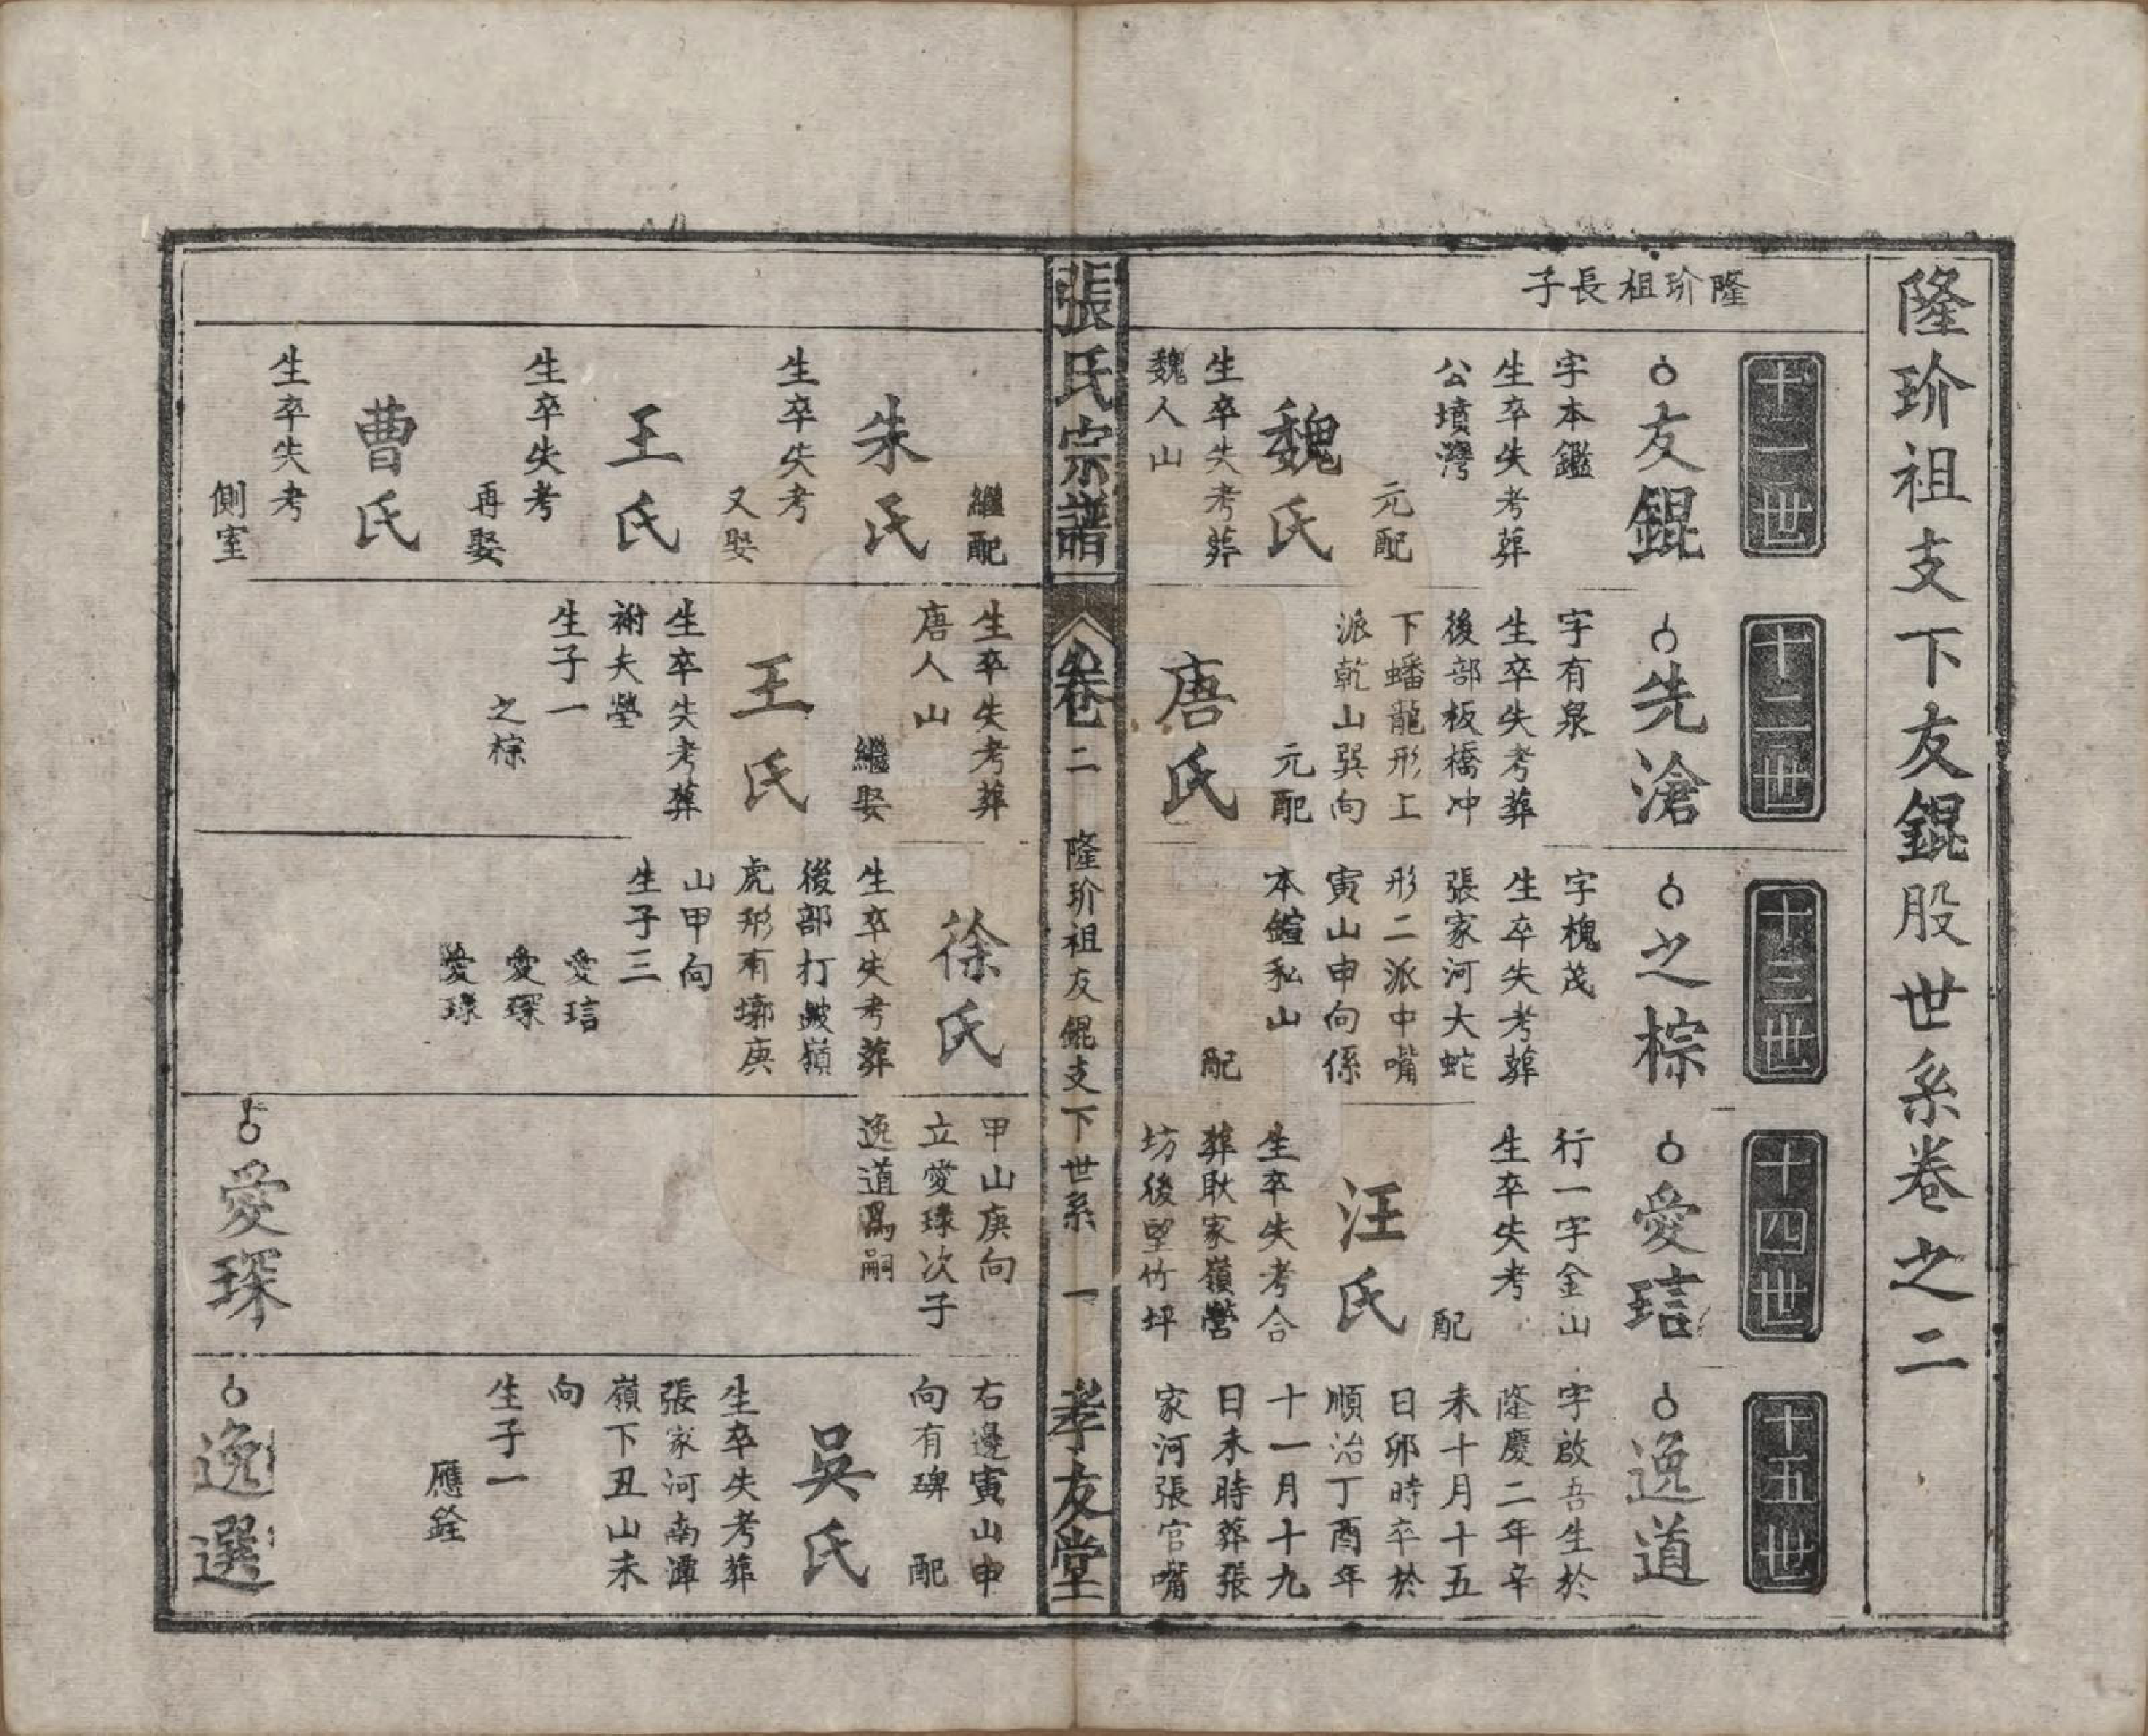 隆玠祖支下友錕股世系卷之二
隆玠祖長子
十一世
友錕
字本鑑
生卒失考葬
公墳灣
元配
魏氏
生卒失考葬
魏人山
十二世
先滄
字有泉
生卒失考葬
後部板橋冲
下蟠龍形上
派乾山巽向
元配
唐氏
十三世
之棕
字槐茂
生卒失考葬
張家河大蛇
形二派中嘴
寅山申向係
本鎧私山
配
十四世
愛琂
行一字金山
生卒失考
配
汪氏
生卒失考合
葬耿家嶺營
坊後望竹坪
十五世
逸道
字啟吾生於
隆慶二年辛
未十月十五
日卯時卒於
順治丁酉年
十一月十九
日未時葬張
家河張官嘴
張氏宗譜
卷二
隆玠祖友錕支下世系
一
孝友堂
繼配
朱氏
生卒失考
又娶
王氏
生卒失考
再娶
曹氏
生卒失考
側室
生卒失考葬
唐人山
繼娶
王氏
生卒失考葬
祔夫塋
生子一
之棕
徐氏
生卒失考葬
後部打皷嶺
虎形有墎庚
山甲向
生子三
愛琂
愛琛
愛琭
甲山庚向
立愛琭次子
逸道為嗣
愛琛
右邊寅山申
向有碑
配
吳氏
生卒失考葬
張家河南潭
嶺下丑山未
向
生子一
應銓
逸選